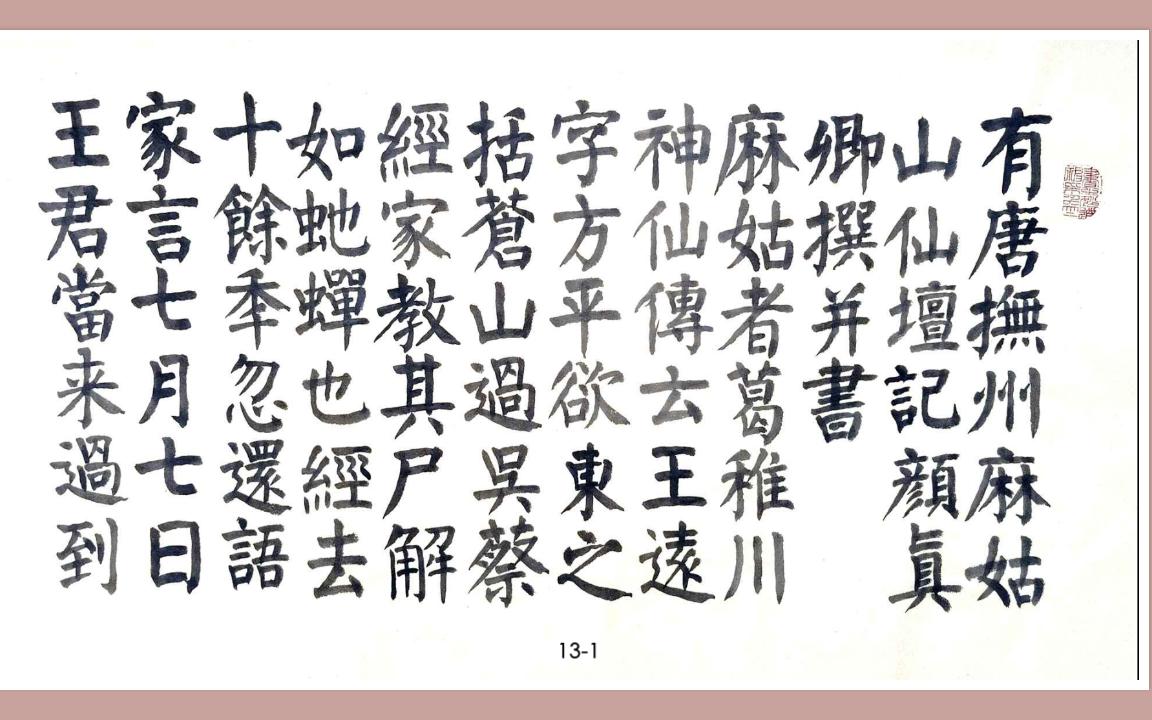 有唐撫州麻姑
山仙壇記顏真
卿撰并書
麻姑者葛稚川
神仙傳云王遠
字方平欲東之
括蒼山過吳蔡
經家教其尸解
如虵蟬也經去
十餘年忽還語
家言七月七日
王君當来過到
13-1